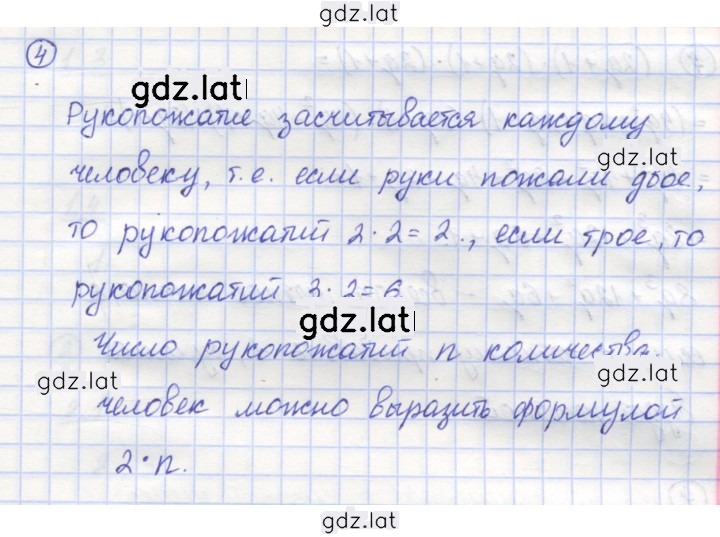 gdz.lat
4
gdz.lat
Рукопожатие засчитывается каждому
gdz.lat
человеку, т.е. если руки пожали двое,
то рукопожатий 2·2=2., если трое, то
рукопожатий 3·2=6
gdz.lat
Число рукопожатий n количества
gdz.lat
gdz.lat
человек можно выразить формулой
2·n.
gdz.lat